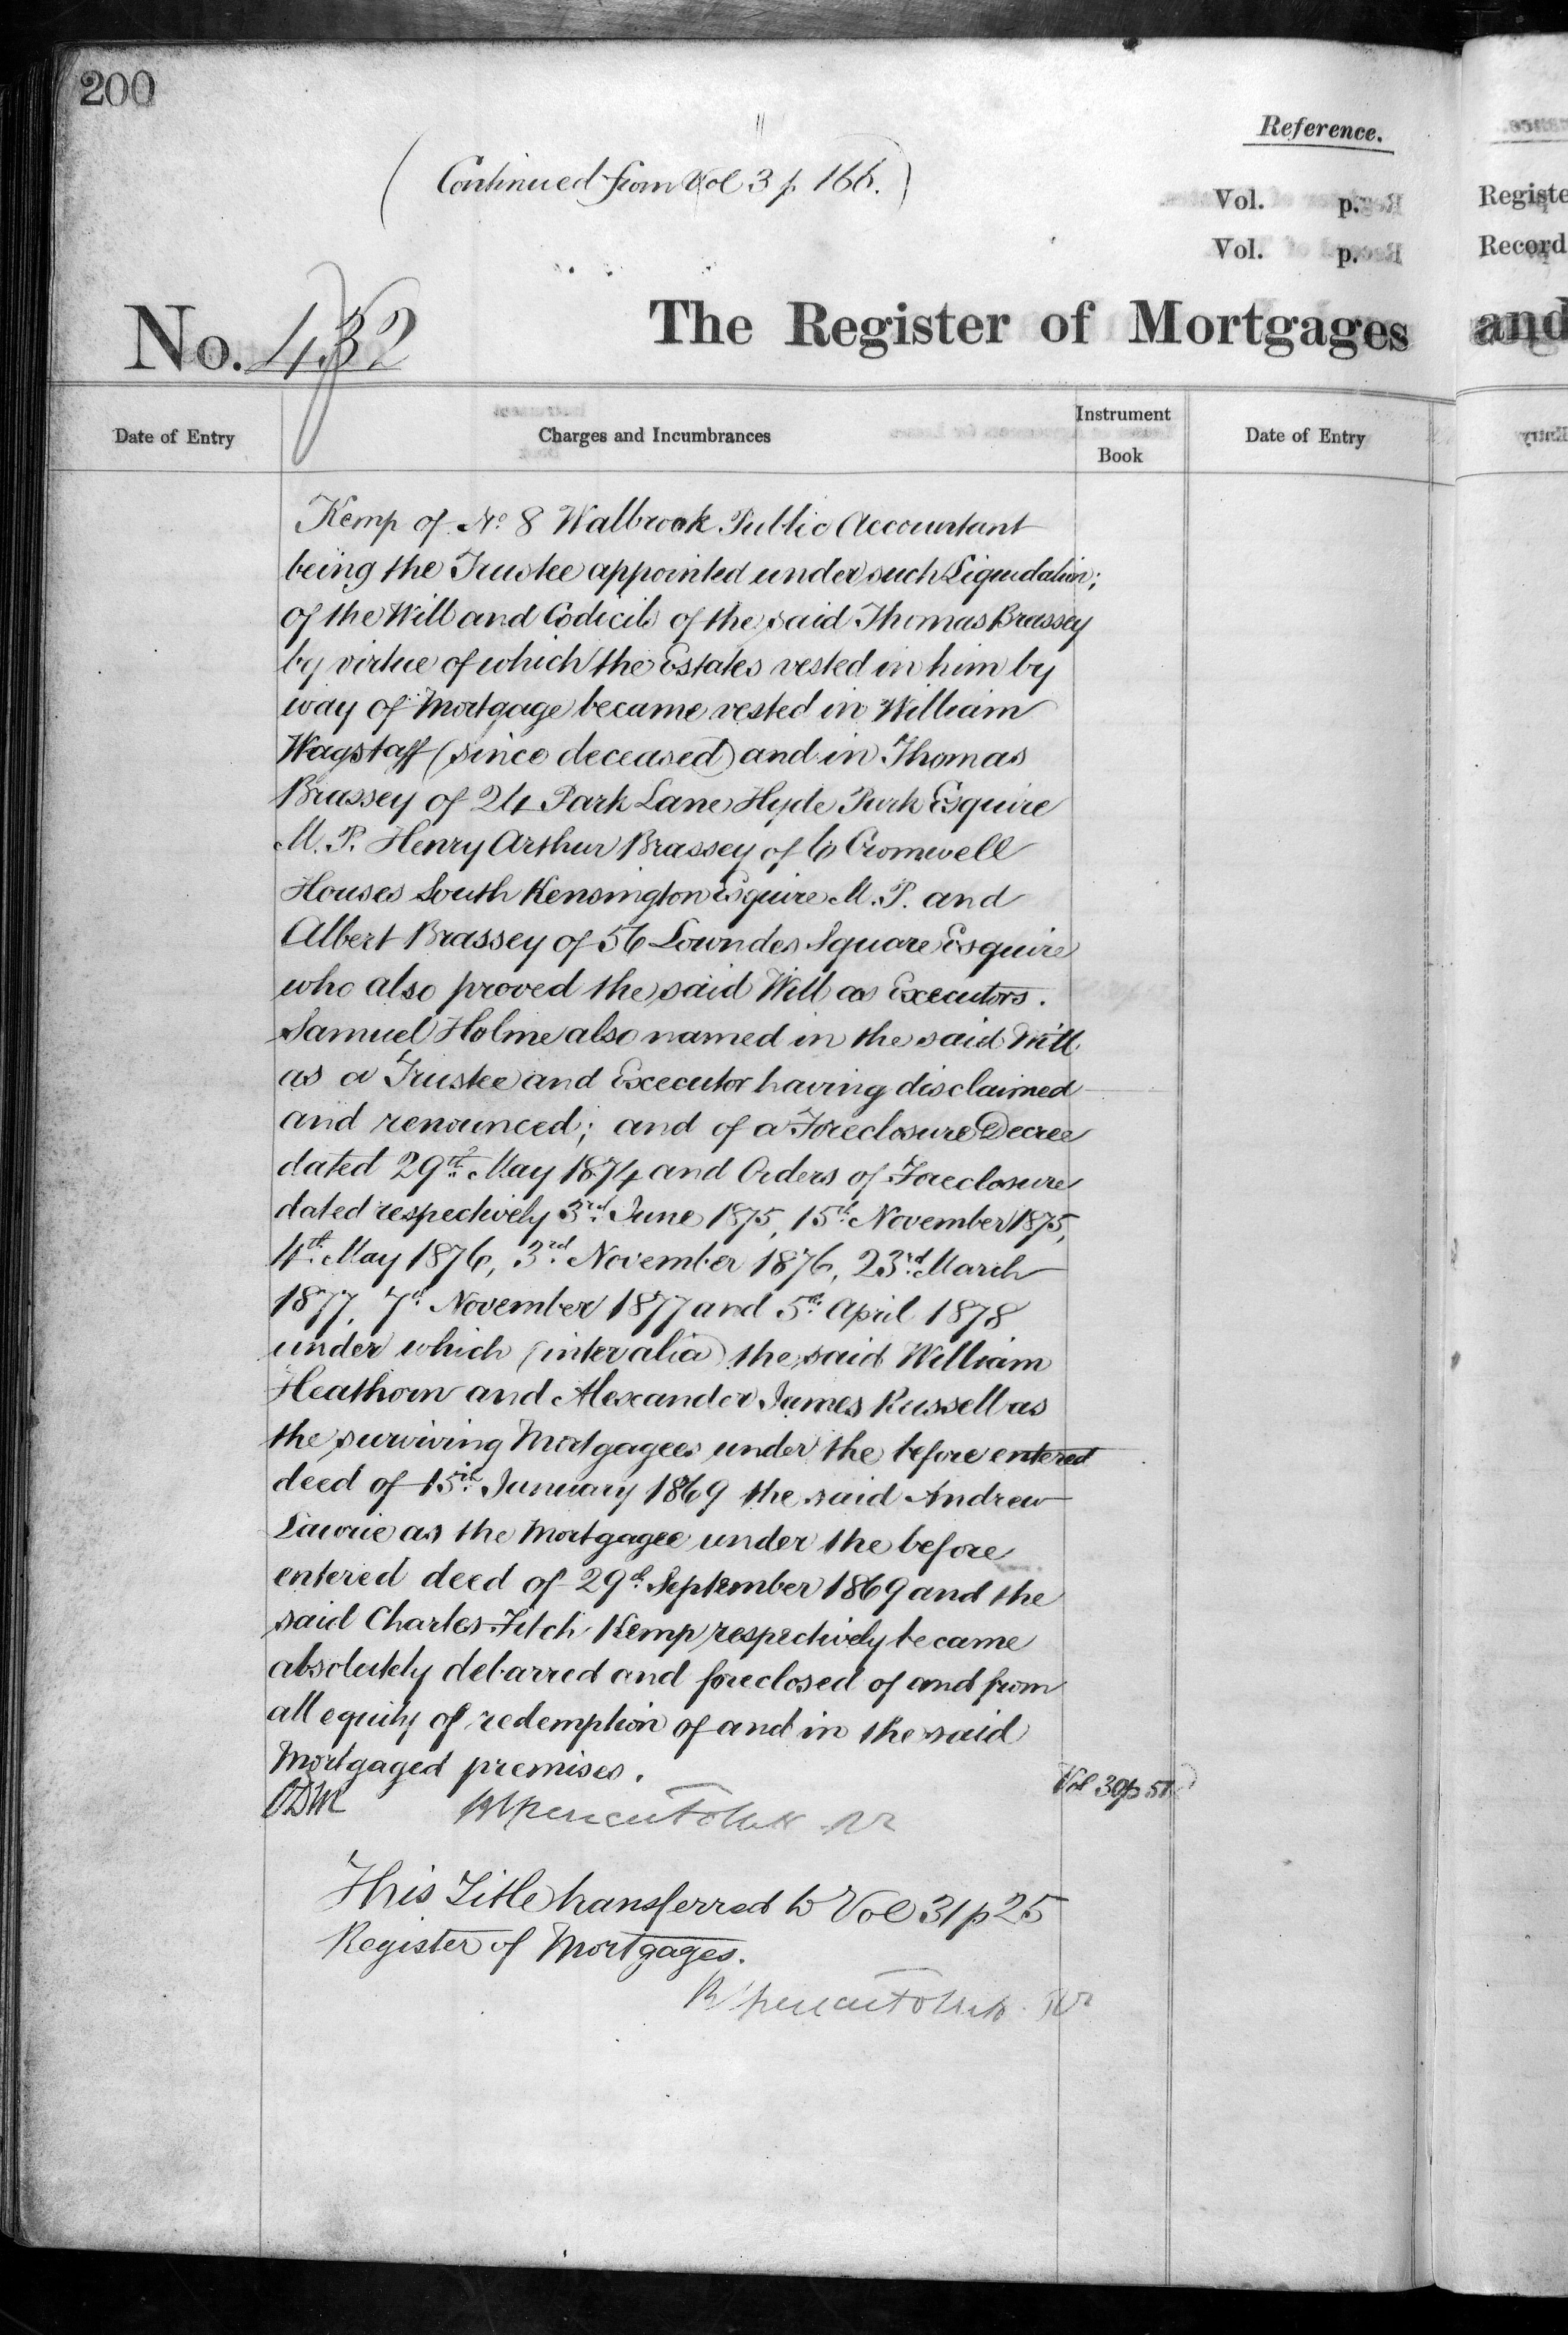 200
Reference.
(Continued from Vol 3 p. 166.)
Vol. p.
Vol. p.
Registe
Record
No. 432
The Register of Mortgages and
Date of Entry
Charges and Incumbrances
Instrument
Book
Date of Entry
Kemp of No 8 Walbrook Public Accountant
being the Trustee appointed under such Liquidation;
of the Will and Codicils of the said Thomas Brassey
by virtue of which the Estates vested in him by
way of Mortgage became vested in William
Wagstaff (since deceased) and in Thomas
Brassey of 24 Park Lane Hyde Park Esquire
M. P. Henry Arthur Brassey of 6 Cromwell
Houses South Kensington Esquire M. P. and
Albert Brassey of 56 Lowndes Square Esquire
who also proved the said Will as Executors.
Samuel Holme also named in the said Will
as a Trustee and Executor having disclaimed
and renounced; and of a Foreclosure Decree
dated 29th May 1874 and Orders of Foreclosure
dated respectively 3rd June 1875, 15th November 1875,
4th May 1876, 3rd November 1876, 23rd March
1877, 7th November 1877 and 5th April 1878
under which (inter alia) the said William
Heathorn and Alexander James Russell as
the surviving Mortgagees under the before entered
deed of 15th January 1869 the said Andrew
Lawrie as the Mortgagee under the before
entered deed of 29th September 1869 and the
said Charles Fitch Kemp respectively became
absolutely debarred and foreclosed of and from
all equity of redemption of and in the said
Mortgaged premises.
Vol 30 p 51
This Title transferred to Vol 31 p 25
Register of Mortgages.